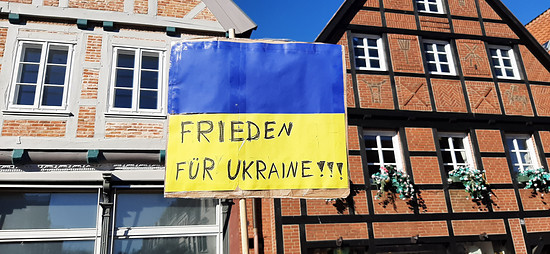 FRIEDEN
FÜR UKRAINE!!!